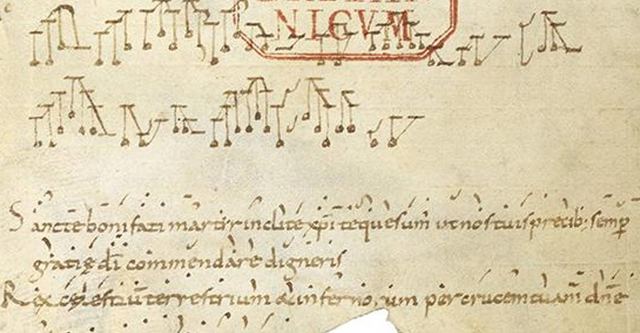 NICVM
Sancte bonifati martir inclite xpi te quesum ut nos tuis precib; semp
gratię di commendare digneris
Rex cęlestiũ terrestrium & inferno, ium per crucem tuam dne